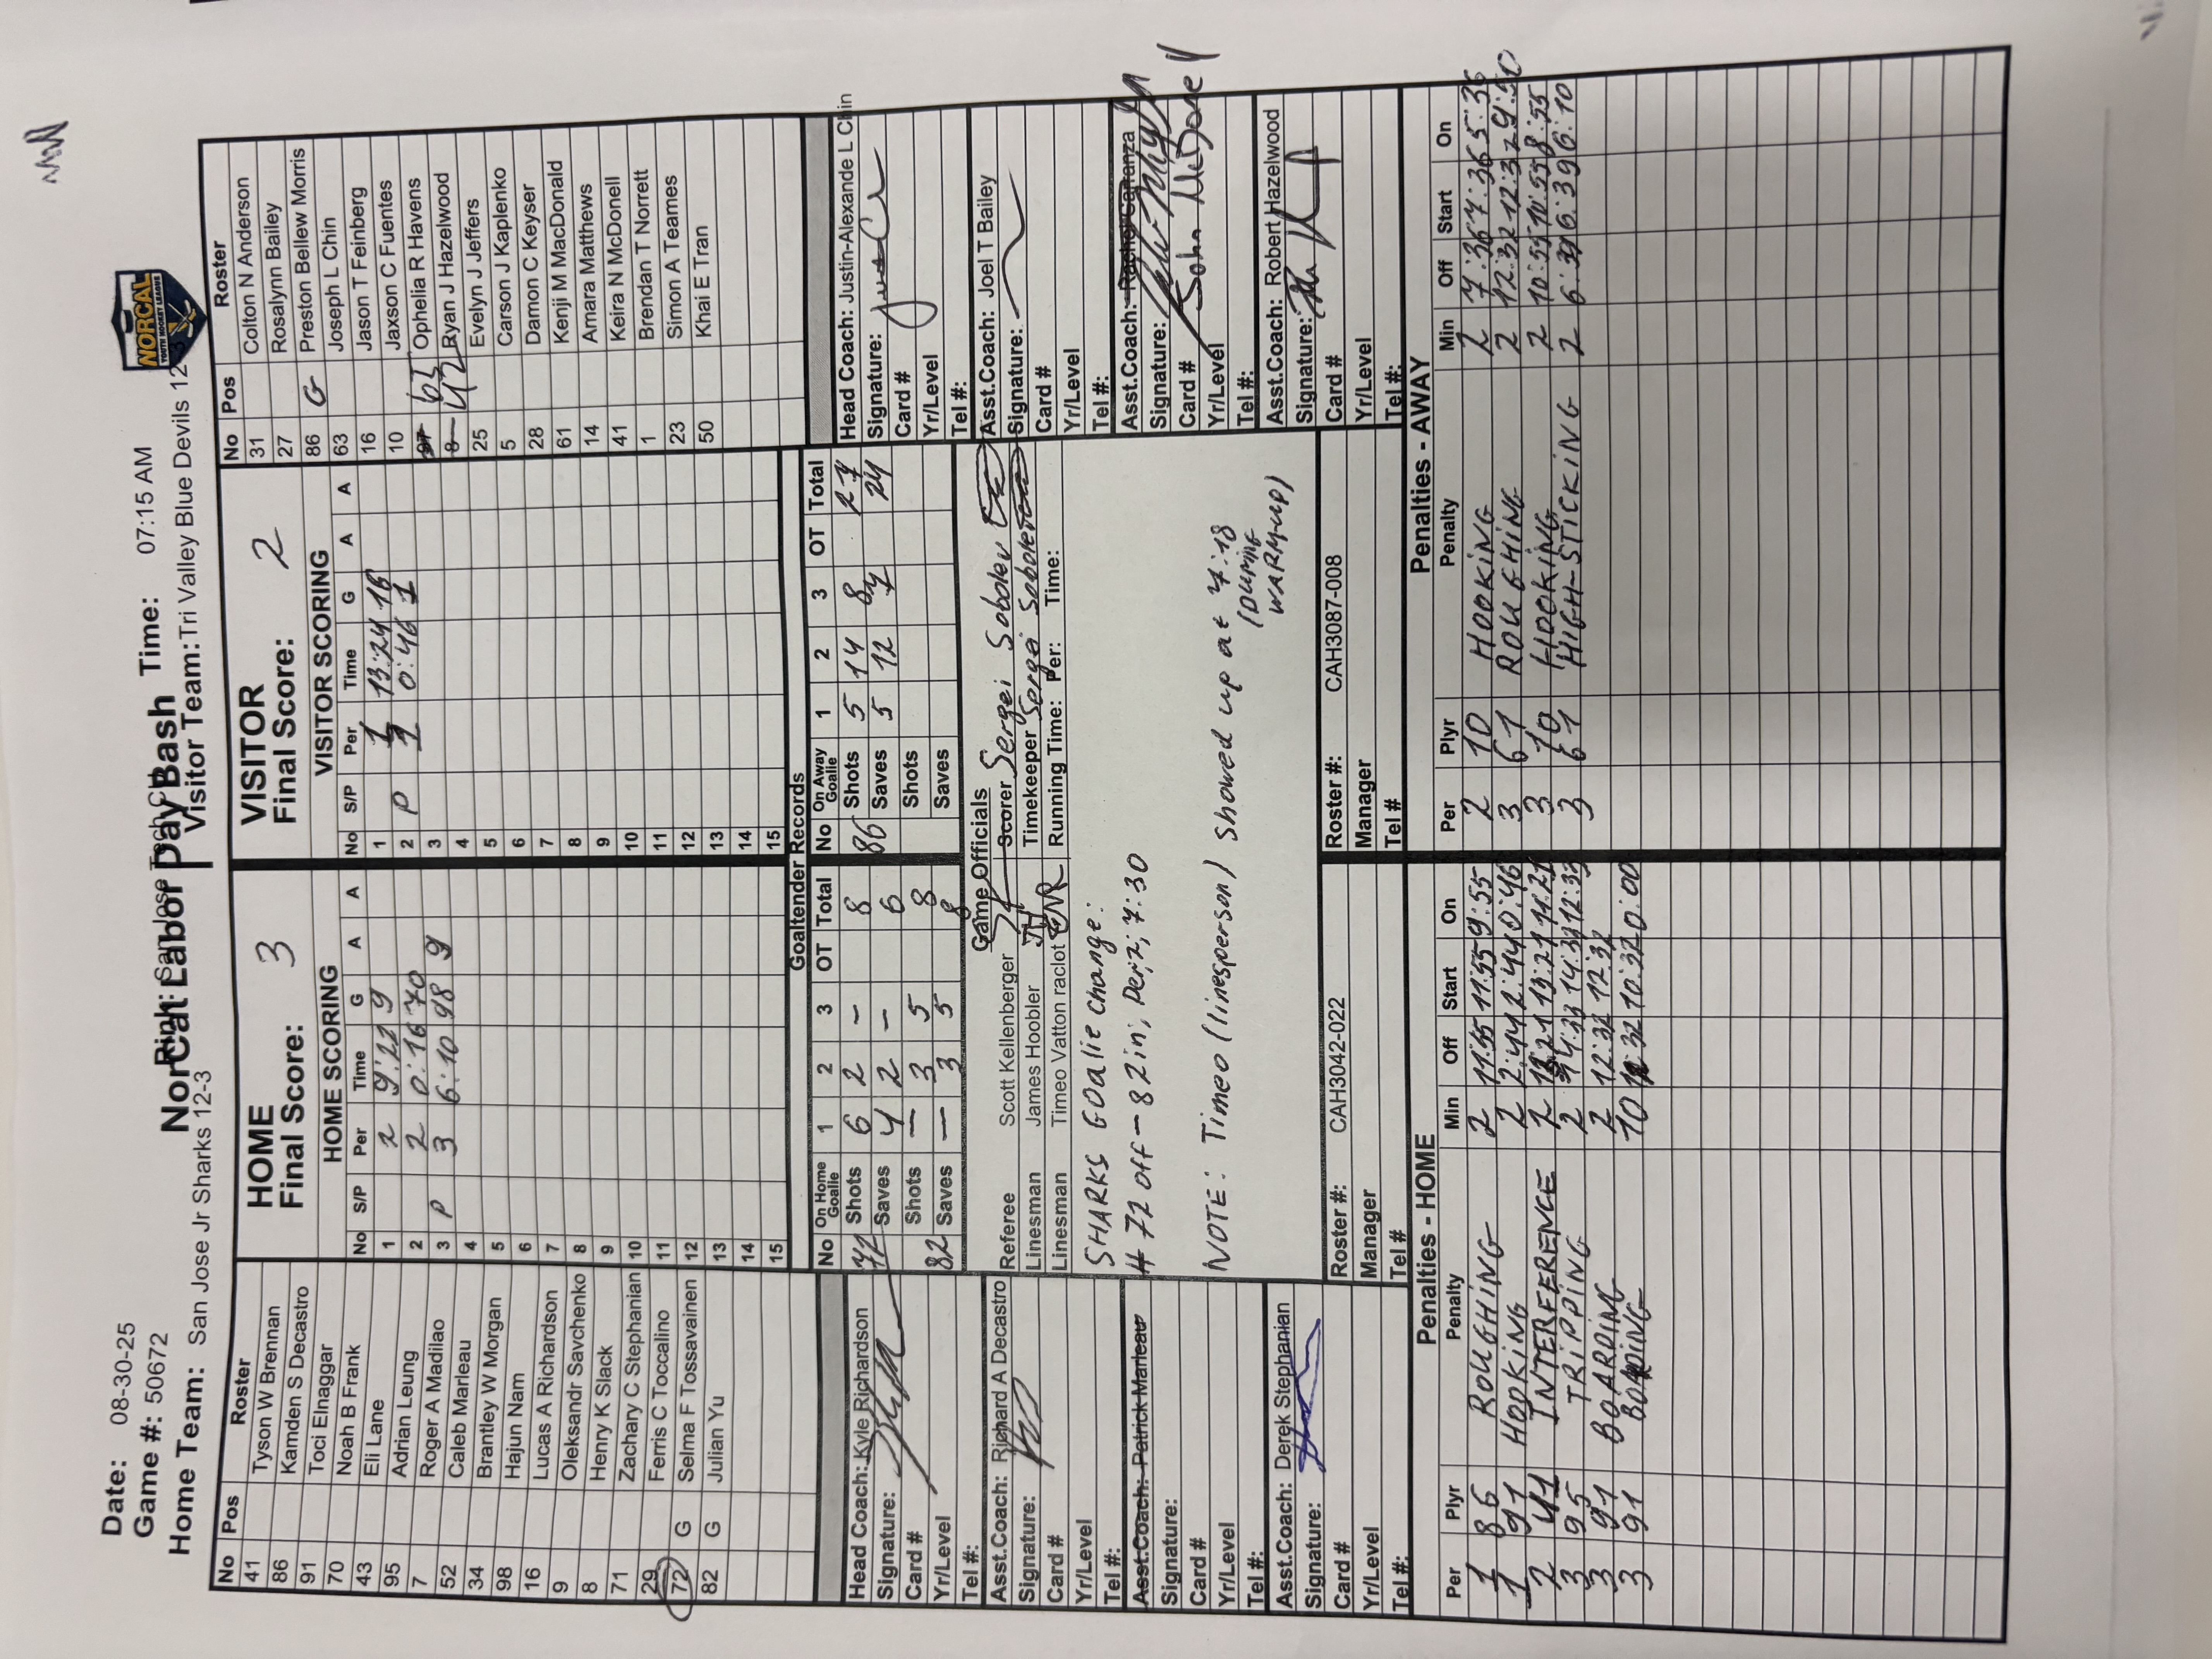 Date: 08-30-25
Game #: 50672
NorCal Labor Day Bash
Time: 07:15 AM
Home Team: San Jose Jr Sharks 12-3
Visitor Team: Tri Valley Blue Devils 12
NORCAL
YOUTH HOCKEY LEAGUE
No Pos Roster
41 Tyson W Brennan
86 Kamden S Decastro
91 Toci Elnaggar
70 Noah B Frank
43 Eli Lane
95 Adrian Leung
7 Roger A Madilao
52 Caleb Marleau
34 Brantley W Morgan
98 Hajun Nam
16 Lucas A Richardson
9 Oleksandr Savchenko
8 Henry K Slack
71 Zachary C Stephanian
29 Ferris C Toccalino
72 G Selma F Tossavainen
82 G Julian Yu
HOME
Final Score: 3
HOME SCORING
No S/P Per Time G A A
1 2 9:22 9
2 2 0:16 70
3 P 3 6:10 98 9
4
5
6
7
8
9
10
11
12
13
14
15
VISITOR
Final Score: 2
VISITOR SCORING
No S/P Per Time G A A
1 1 13:24 16
2 P 1 0:46 1
3
4
5
6
7
8
9
10
11
12
13
14
15
No Pos Roster
31 Colton N Anderson
27 Rosalynn Bailey
86 G Preston Bellew Morris
63 Joseph L Chin
16 Jason T Feinberg
10 Jaxson C Fuentes
65 Ophelia R Havens
8 42 Ryan J Hazelwood
25 Evelyn J Jeffers
5 Carson J Kaplenko
28 Damon C Keyser
61 Kenji M MacDonald
14 Amara Matthews
41 Keira N McDonell
1 Brendan T Norrett
23 Simon A Teames
50 Khai E Tran
Goaltender Records
No On Home Goalie 1 2 3 OT Total
72 Shots 6 2 - 8
Saves 4 2 - 6
Shots - 3 5 8
82 Saves - 3 5 8
No On Away Goalie 1 2 3 OT Total
86 Shots 5 14 8 27
Saves 5 12 7 24
Shots
Saves
Head Coach: Kyle Richardson
Signature:
Card #
Yr/Level
Tel #:
Asst.Coach: Richard A Decastro
Signature:
Card #
Yr/Level
Tel #:
Asst.Coach: Patrick Marleau
Signature:
Card #
Yr/Level
Tel #:
Asst.Coach: Derek Stephanian
Signature:
Card #
Yr/Level
Tel #:
Game Officials
Referee Scott Kellenberger
Linesman James Hoobler JH
Linesman Timeo Vatton raclot
Scorer Sergei Sobolev
Timekeeper Sergei Sobolev
Running Time: Per: Time:
SHARKS GOalie change:
# 72 off - 82 in, Per:2, 7:30
NOTE: Timeo (linesperson) showed up at 7:18
(DURING
WARM-UP)
Roster #: CAH3042-022
Manager
Tel #
Roster #: CAH3087-008
Manager
Tel #
Head Coach: Justin-Alexande L Chin
Signature:
Card #
Yr/Level
Tel #:
Asst.Coach: Joel T Bailey
Signature:
Card #
Yr/Level
Tel #:
Asst.Coach: Rachel Carranza
Signature:
Card # John McDonell
Yr/Level
Tel #:
Asst.Coach: Robert Hazelwood
Signature:
Card #
Yr/Level
Tel #:
Penalties - HOME
Per Plyr Penalty Min Off Start On
1 86 ROUGHING 2 11:55 11:55 9:55
1 91 HOOKING 2 2:44 2:44 0:46
2 41 INTERFERENCE 2 13:21 13:21 11:21
3 95 TRIPPING 2 14:33 14:33 12:33
3 91 BOARDING 2 12:32 12:32
3 91 BOARDING 10 10:32 0:00
Penalties - AWAY
Per Plyr Penalty Min Off Start On
2 10 HOOKING 2 7:36 7:36 5:36
3 61 ROUGHING 2 12:32 12:32
3 10 HOOKING 2 10:55 10:55 8:55
3 61 HIGH-STICKING 2 6:39 6:39 6:10